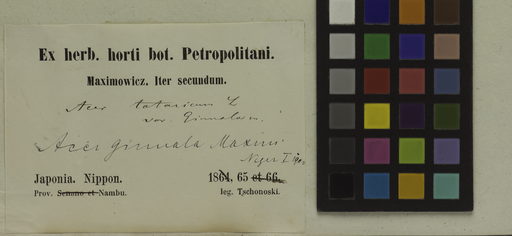 Ex herb. horti bot. Petropolitani.
Maximowicz. Iter secundum.
Acer tataricum L
var. Ginnala m.
Acer ginnala Maxim
Japonia. Nippon. 1864, 65 et 66.
Prov. Senano et Nambu. leg. Tschonoski.